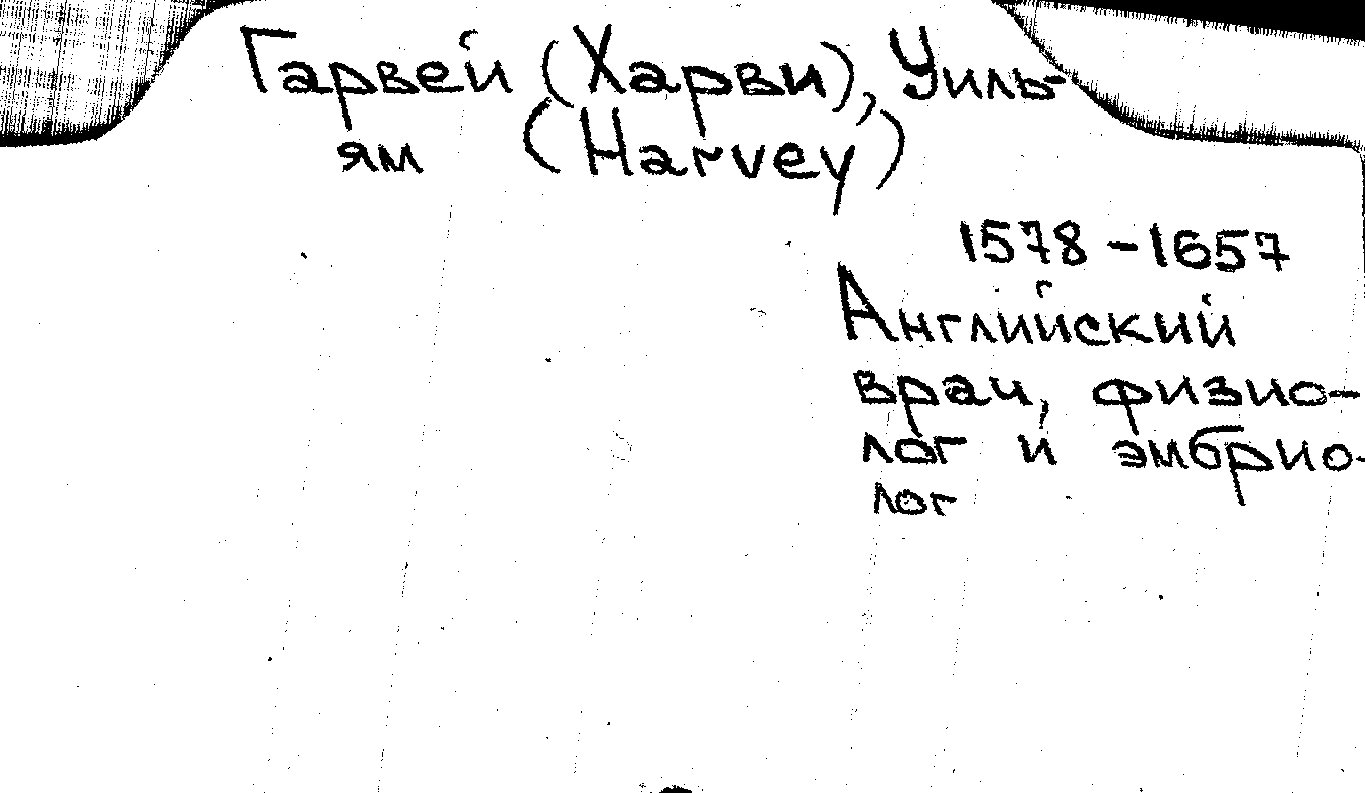 Гарвей (Харви), Уиль-
ям (Harvey)
1578-1657
Английский
врач, физио-
лог и эмбрио-
лог